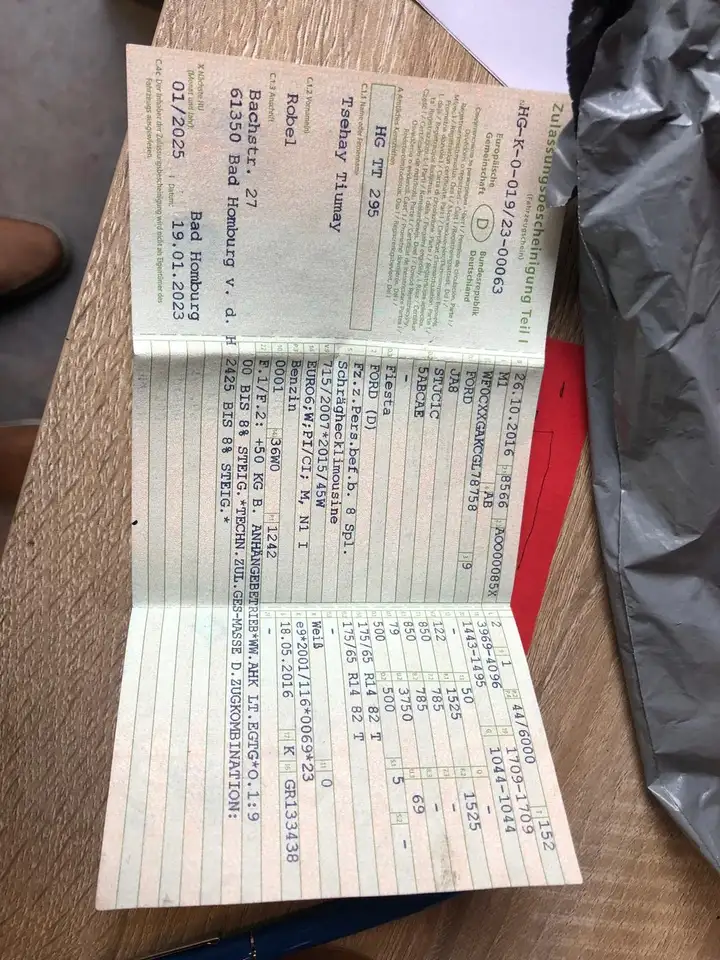 Zulassungsbescheinigung Teil I
(Fahrzeugschein)
HG-K-0-019/23-00063
Europäische
Gemeinschaft
D
Bundesrepublik
Deutschland
HG TT 295
C.1.1 Name oder Firmenname
Tsehay Tiumay
C.1.2 Vorname(n)
Robel
C.1.3 Anschrift
Bachstr. 27
61350 Bad Homburg v. d. H
X Nächste HU
(Monat und Jahr)
01/2025
Bad Homburg
Datum:
19.01.2023
C.4c Der Inhaber der Zulassungsbescheinigung wird nicht als Eigentümer des
Fahrzeugs ausgewiesen.
26.10.2016 8566 AOO00085X
M1 AB
WF0CXXGAKCGL78758 9
FORD
JA8
STJC1C
5ABCAE
-
Fiesta
FORD (D)
Fz.z.Pers.bef.b. 8 Spl.
Schräghecklimousine
715/2007*2015/45W
EURO6;W;PI/CI; M, N1 I
Benzin
0001 36W0 1242
2 1 44/6000 152
3969-4096 1709-1709
1443-1495 1044-1044
- 50 - -
122 1525 1525
850 785 - -
850 785 - -
79 3750 69
500 500 5 -
175/65 R14 82 T
175/65 R14 82 T
-
-
Weiß 0
e9*2001/116*0069*23
18.05.2016 K GR133438
-
F.1/F.2: +50 KG B. ANHÄNGEBETRIEB*WW.AHK LT.EGTG*O.1:9
00 BIS 8% STEIG.*TECHN.ZUL.GES-MASSE D.ZUGKOMBINATION:
2425 BIS 8% STEIG.*